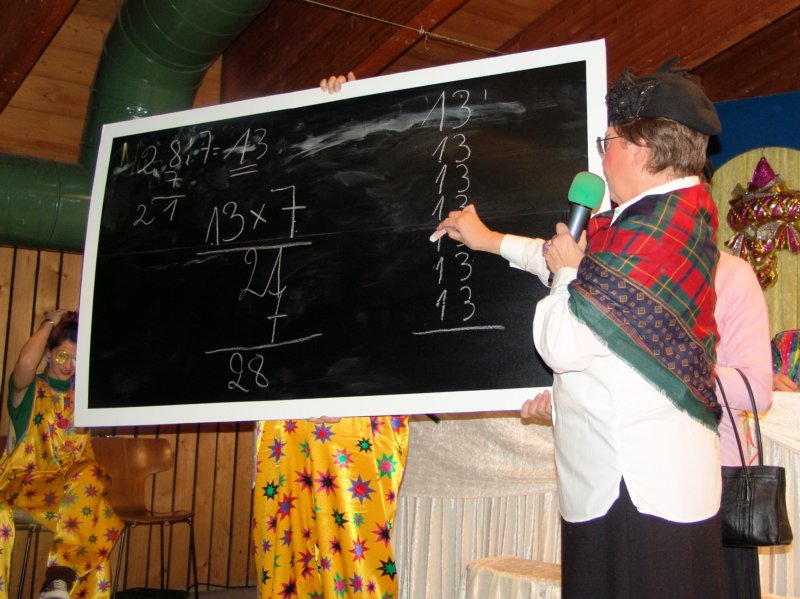 28:7=13
7
21
13 x 7
21
7
28
13
13
13
13
13
13
13